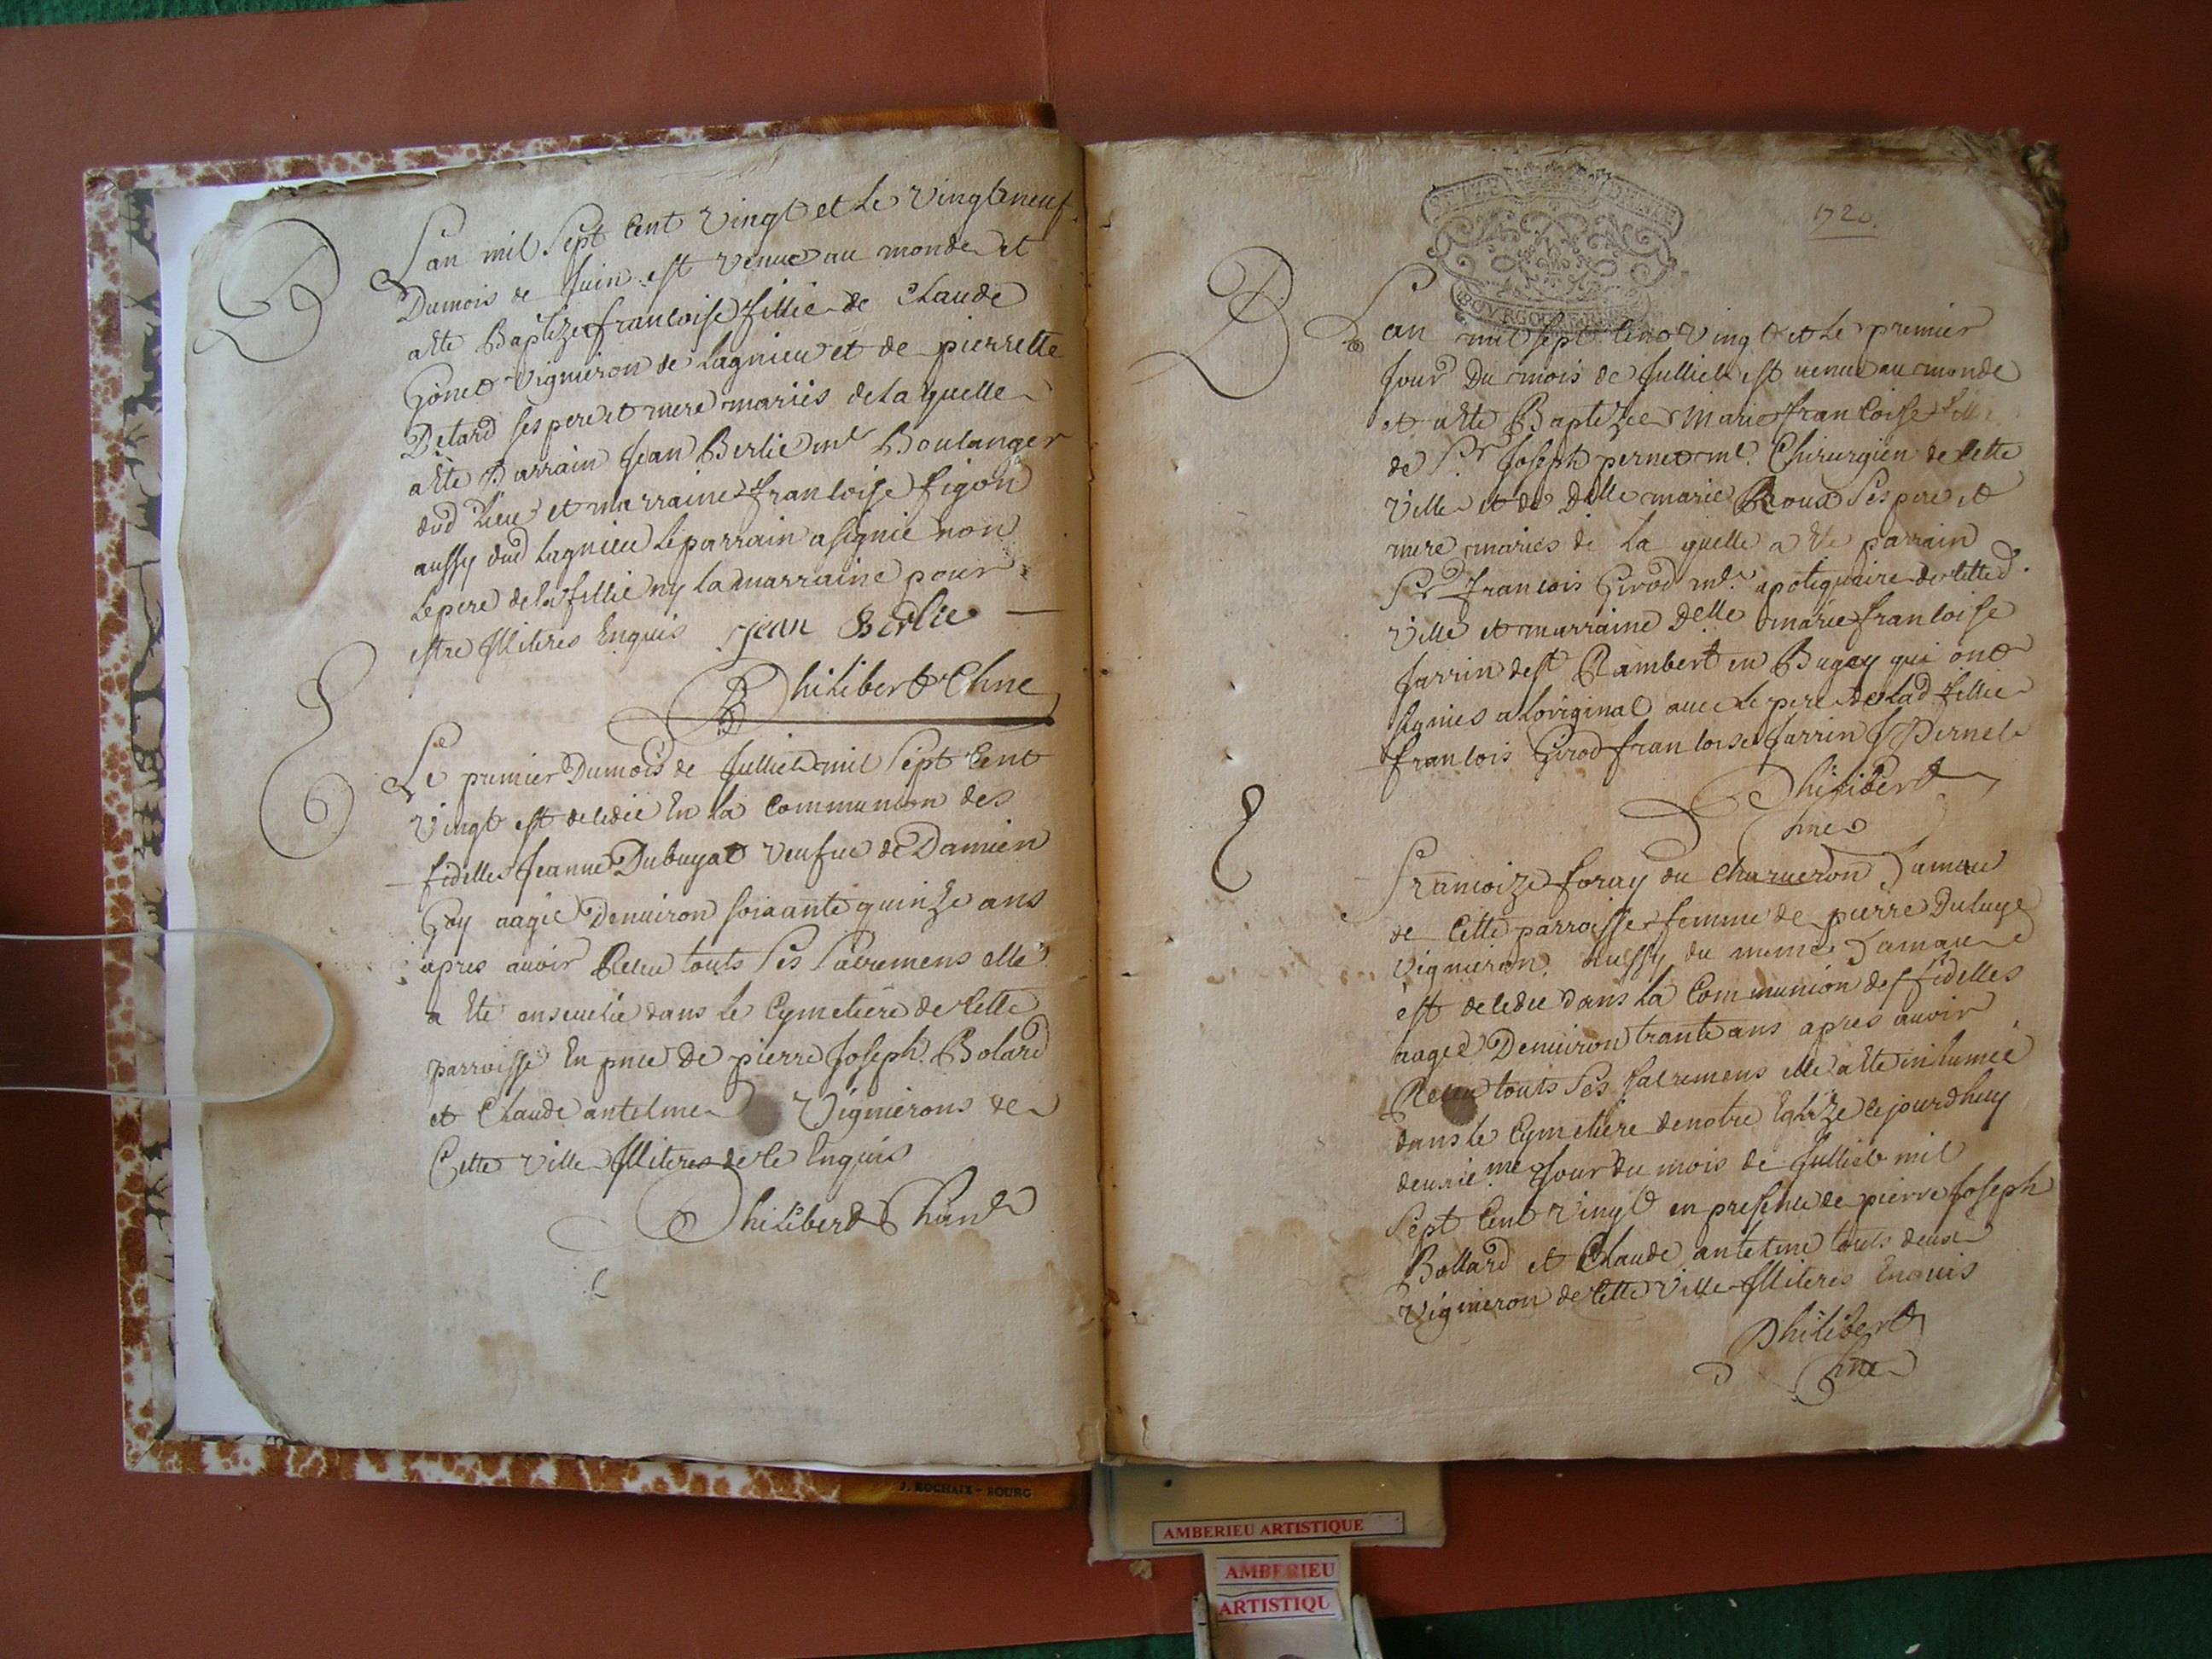 B
L'an mil sept cent vingt et le vingteneuf
Dumois de Juin est venue au monde et
a ette Baptizee francoise fillie de Claude
Gonet vignieron de Lagnieu et de pierrette
Detard ses pere et mere mariés de la quelle
a ete Parrain Jean Berlie me Boulanger
dud lieu et marraine francoise figon
aussy dud Lagnieu le parrain a signie non
le pere de la fillie ny la marraine pour
estre illiteres Enquis Jean Berlie
Philibert Chne
Le premier Dumois de Julliet mil sept Cent
Vingt est decedée En la Communion des
fidelles Jeanne Dubuyat veufue de Damien
Goy aagée Denuiron soixante quinze ans
apres auoir Receu touts ses sacremens elle
a ete enseuelie dans le Cymetiere de Cette
parroisse En pnce de pierre Joseph Bolard
et Claude antelme Vignierons de
Cette ville Illiteres de ce Enquis
Philibert Chne
1720.
BOURGOGNE
B
L'an mil sept Cent Vingt et le premier
Jour Du mois de Julliet est uenue au monde
et a ette Baptizee Marie francoise fillie
de Sr Joseph pernet me Chirurgien de Cette
ville et de Delle marie Roux ses pere et
mere mariés de la quelle a ete parrain
Sr francois Girod me apotiquaire de Cette d
ville et marraine Delle marie francoise
Jarrin de st Rambert en Bugey qui ont
signies a Loriginal auec le pere de lad fillie
francois Girod francoise Jarrin J Pernet
Philibert
Chne
Francoize foray du Charueron hameau
de Cette parroisse femme de pierre Duluye
vignieron aussy du meme hameau
est decedee dans la Communion des fidelles
aagee Denuiron trante ans apres auoir
Receu touts ses sacremens elle a ette inhumee
dans le Cymetiere de notre Eglize ce jourdhuy
deuxieme Jour du mois de Julliet mil
sept Cent vingt en presence de pierre Joseph
Bollard et Claude antelme touts deux
vignieron de Cette ville Illiteres Enquis
Philibert
Chne
J. ROCHAIX - BOURG
AMBERIEU ARTISTIQUE
AMBERIEU
ARTISTIQU